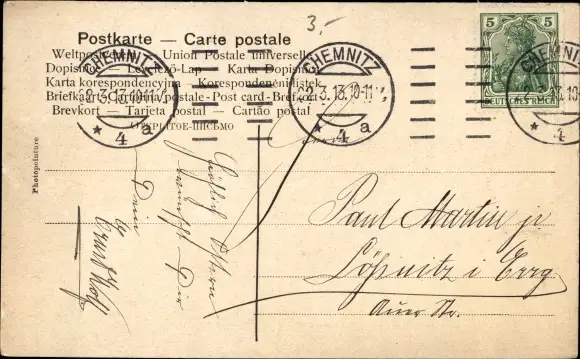 3,-
Postkarte — Carte postale
Weltpostverein — Union Postale universelle
Dopisnice — Levelező-Lap — Karta Dopisnic
Karta korespondencyjna — Korespondenčni listek
Briefkaart — Cartolina postale - Post card - Brefkort
Brevkort — Tarjeta postal — Cartão postal
ОТКРЫТОЕ ПИСЬМО
CHEMNITZ
2.3.13.10-11V.
* 4 a
CHEMNITZ
2.3.13.10-11V.
* 4 a
5 5
DEUTSCHES REICH
CHEMNITZ
2.3.13.10
* 4
Photopelature
Fröhliche Ostern
wünscht Dir
Dein
Ernst
Paul Martin jr
Lößnitz i Erzg
Auer Str.